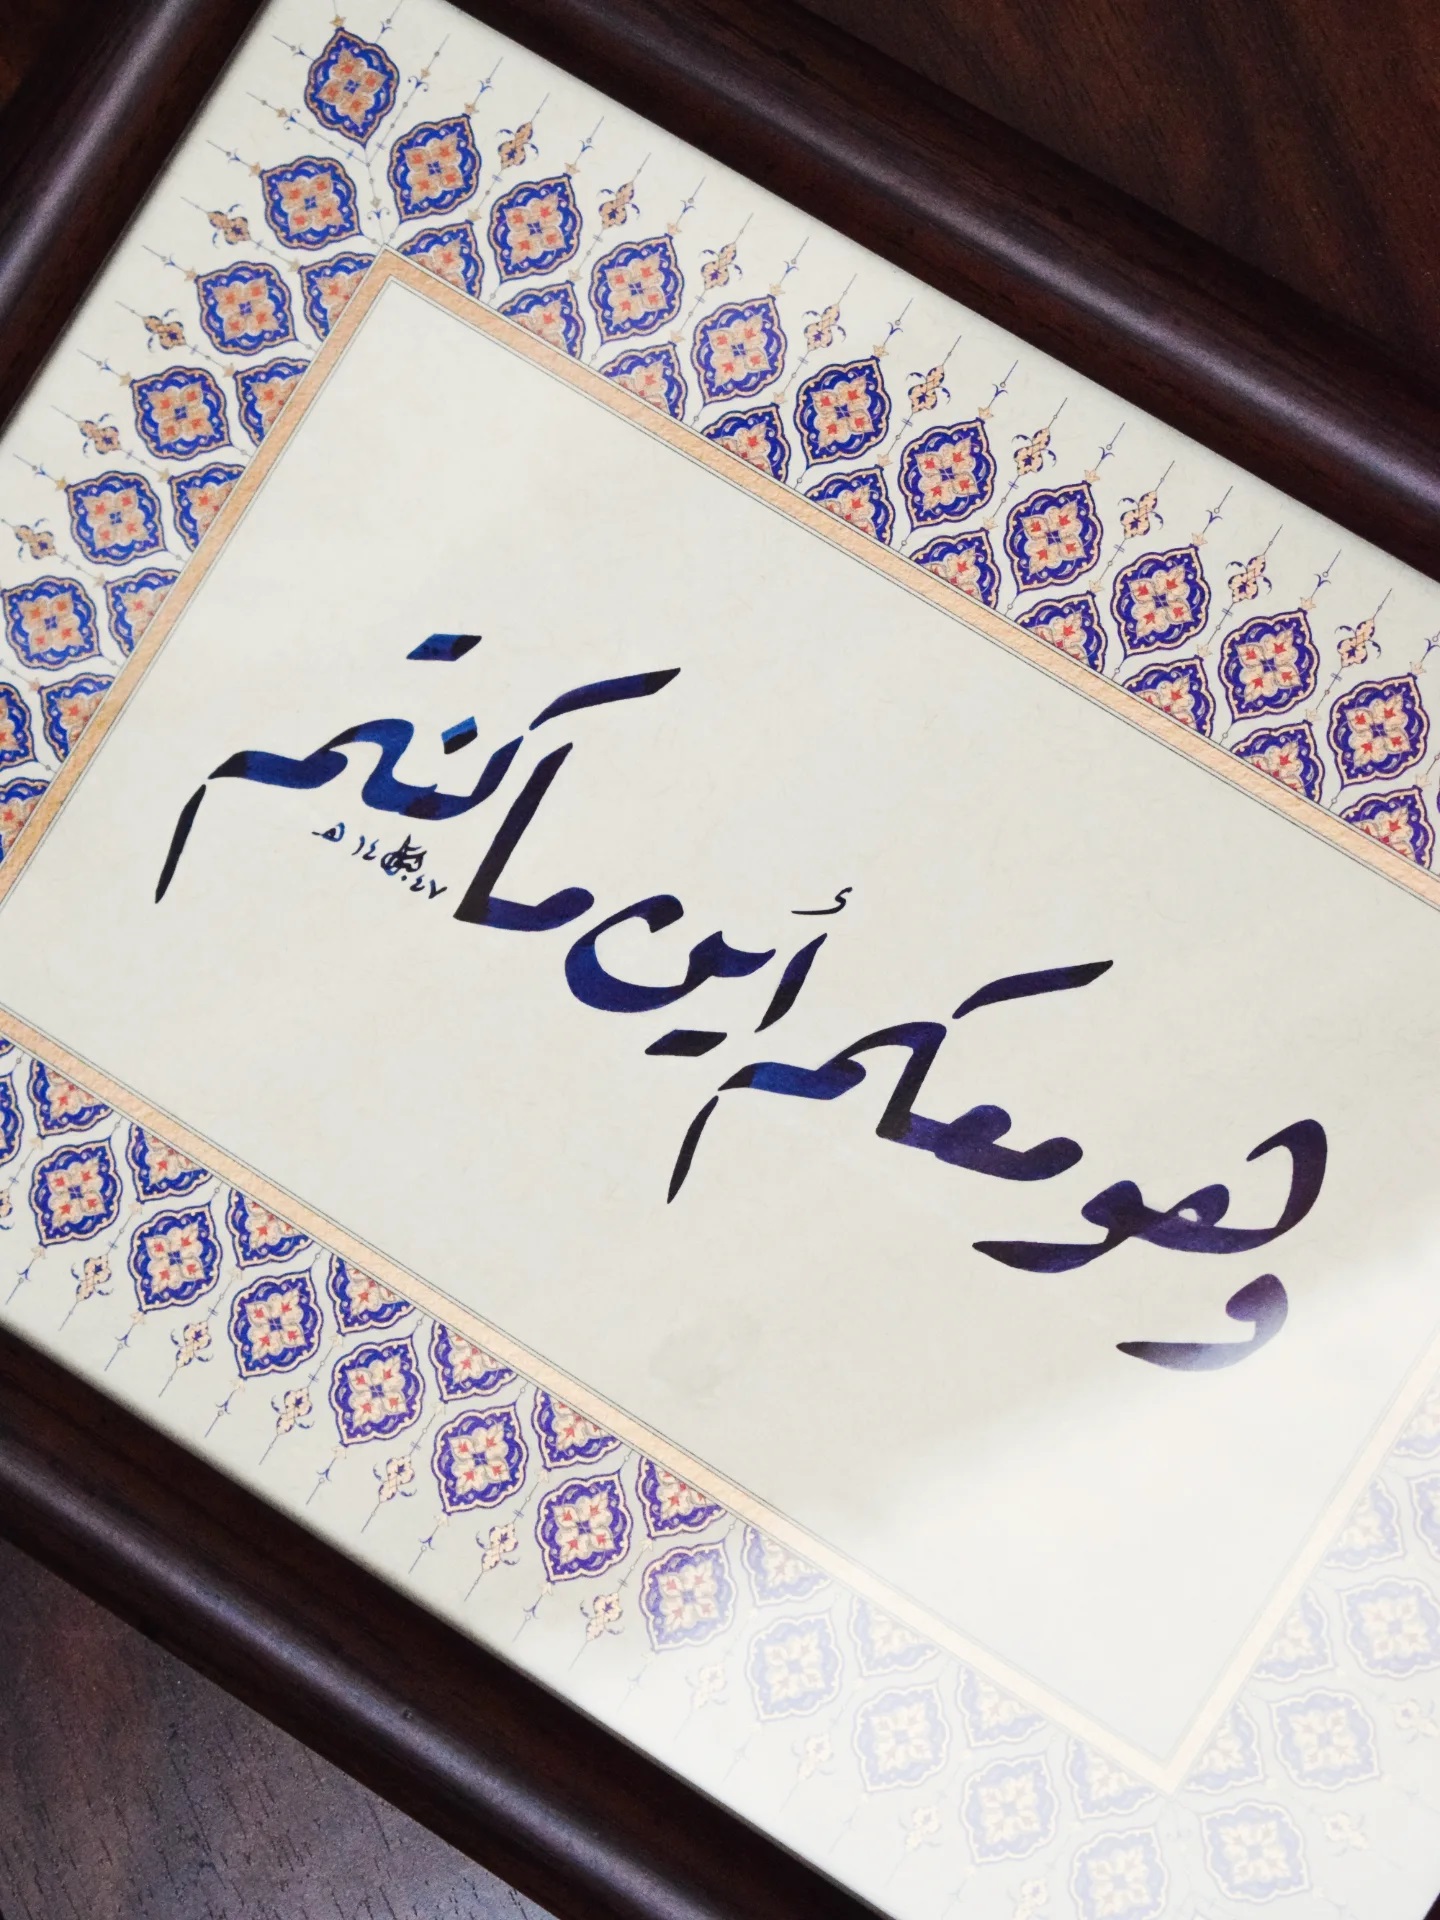 وهو معكم أين ما كنتم
١٤٤٧ هـ